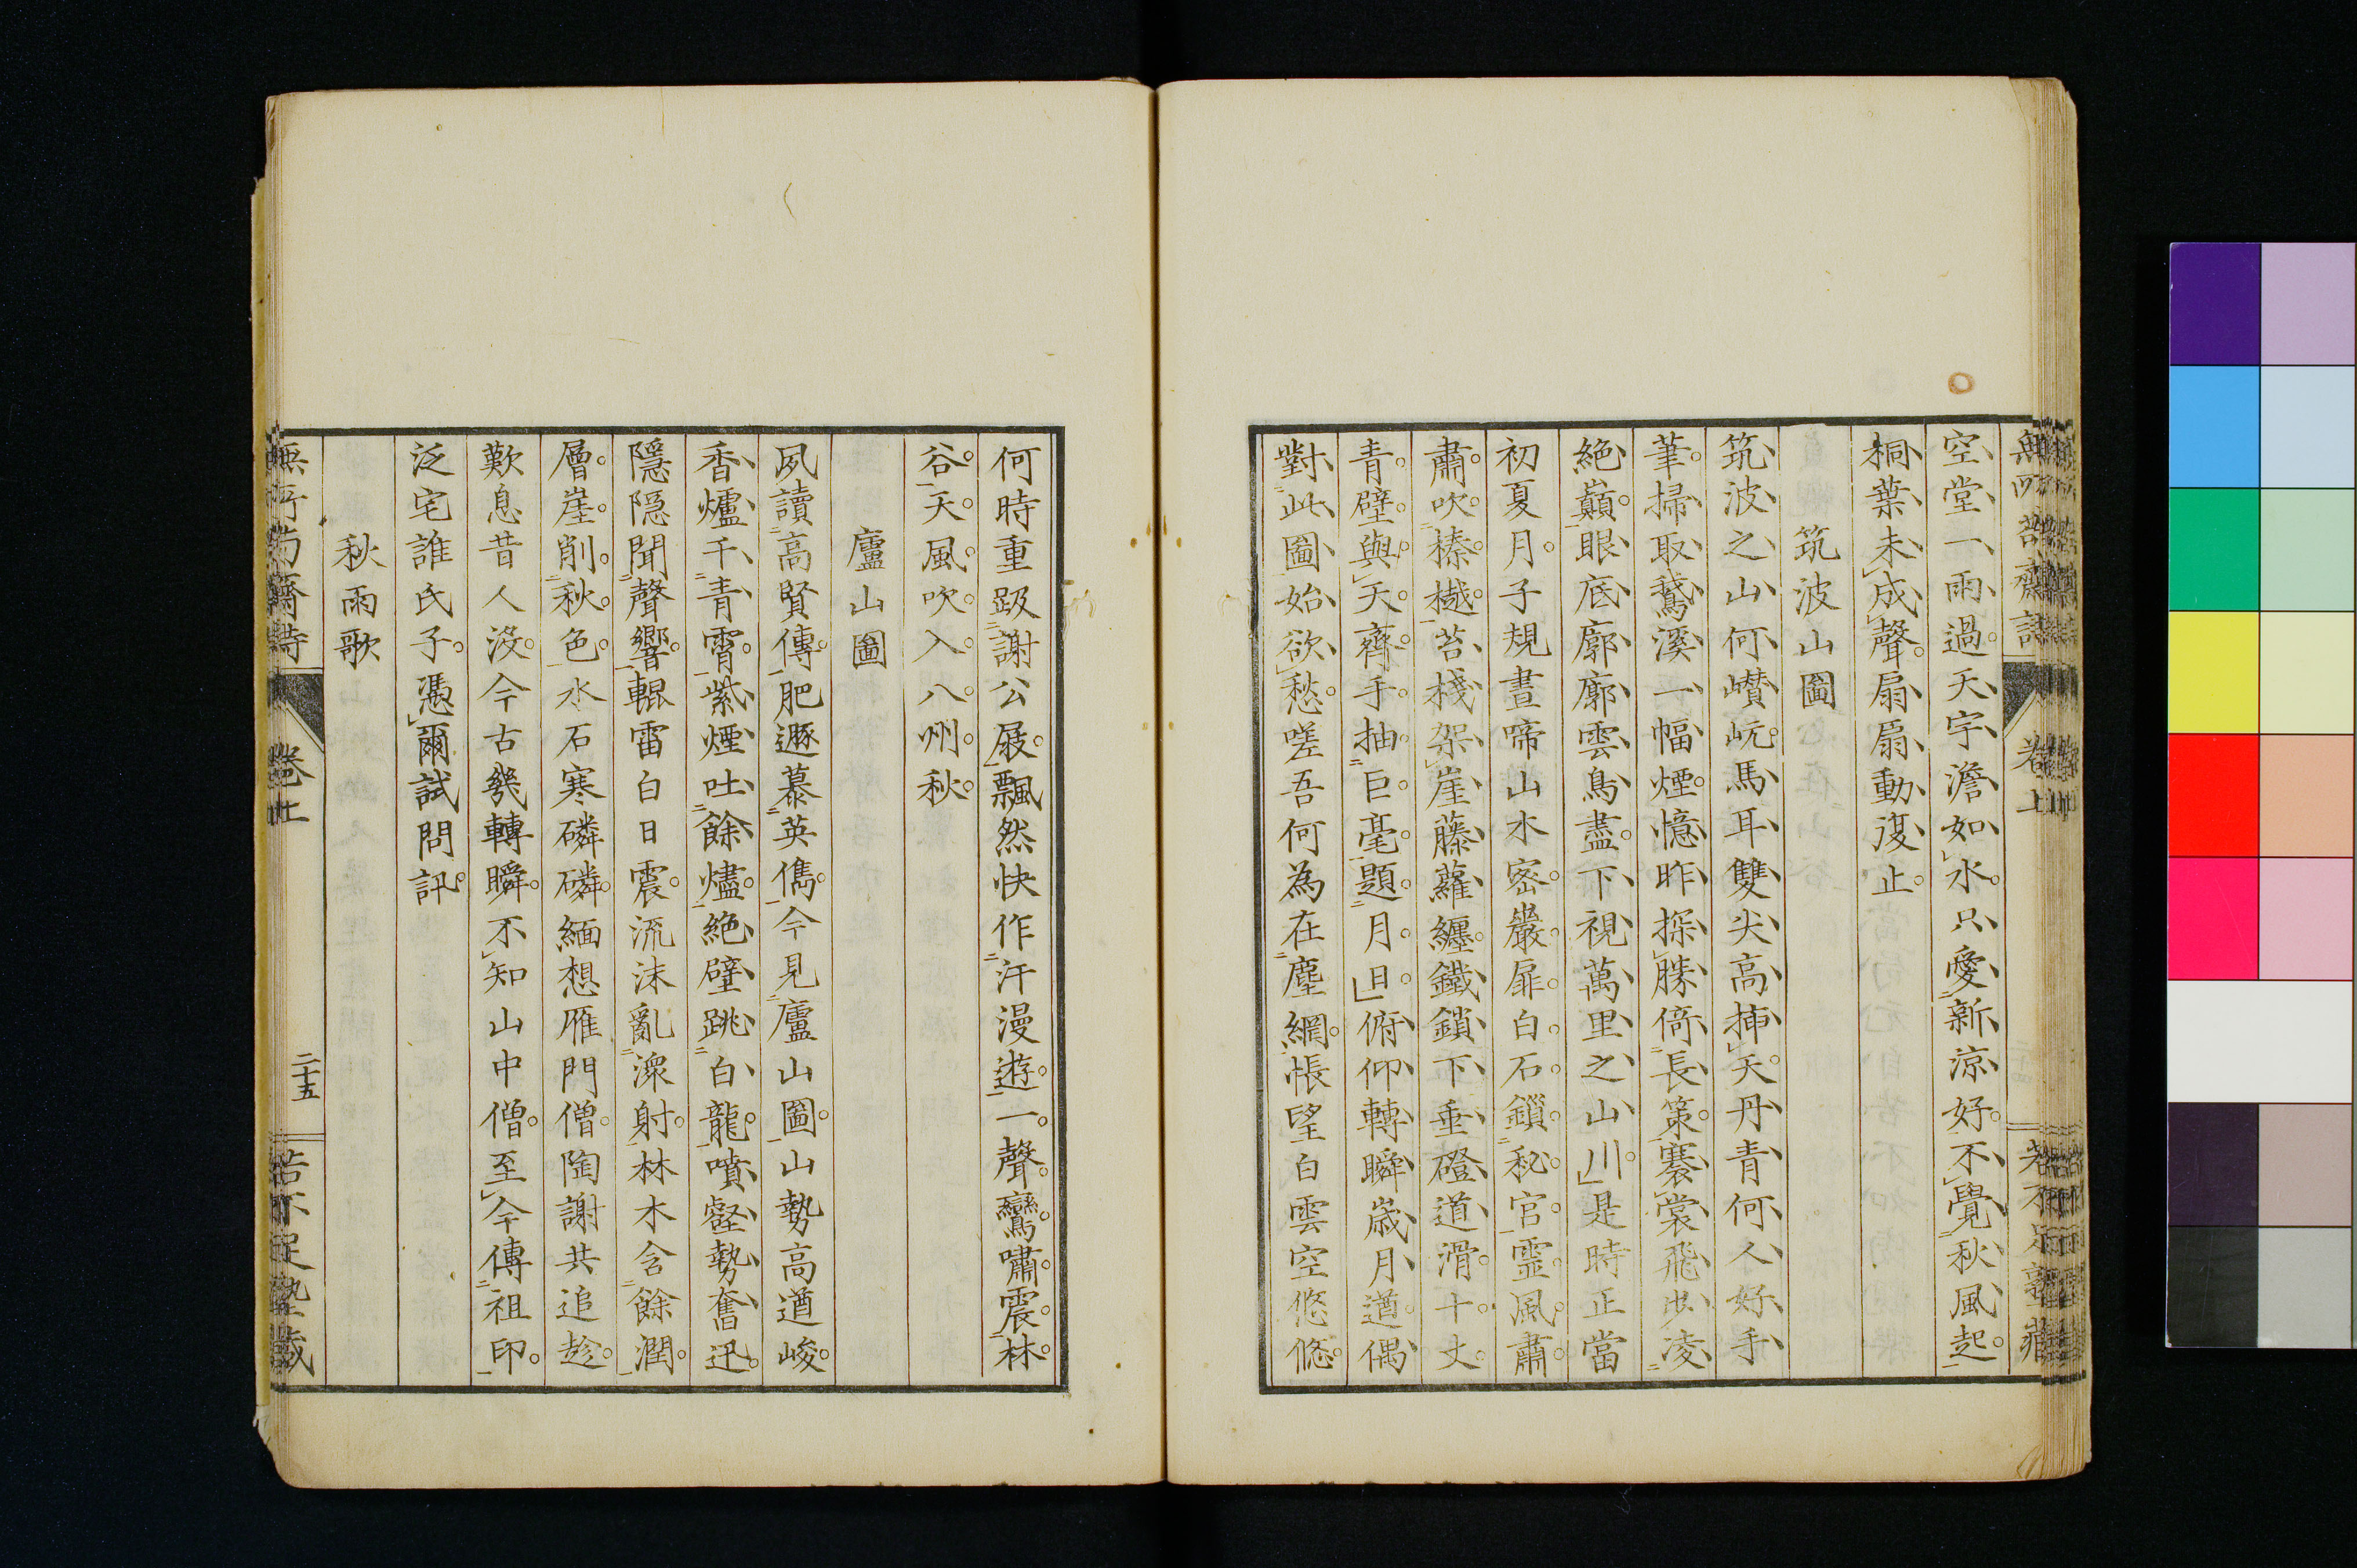 空堂一雨過天宇澹如水只愛新涼好不覺秋風起
桐葉未成聲扇扇動復止
筑波山圖
筑波之山何巑岏馬耳雙尖高挿天丹青何人好手
筆掃取鵞溪一幅煙憶昨探勝倚長策褰裳飛步凌
絶巔眼底廓廓雲鳥盡下視萬里之山川是時正當
初夏月子規晝啼山木密巖扉白石鎖秘宮靈風肅
肅吹榛樾苔棧架崖藤蘿纏鐵鎖下垂磴道滑十丈
青壁與天齊手抽巨毫題月日俯仰轉瞬歲月遒偶
對此圖始欲愁嗟吾何為在塵網悵望白雲空悠悠
何時重跋謝公屐飄然快作汗漫遊一聲鸞嘯震林
谷天風吹入八州秋
廬山圖
夙讀高賢傳肥遯慕英儁今見廬山圖山勢高遒峻
香爐千青霄紫煙吐餘燼絶壁跳白龍噴壑勢奮迅
隱隱聞聲響輥雷白日震流沫亂濴射林木含餘潤
層崖削秋色水石寒磷磷緬想雁門僧陶謝共追趁
歎息昔人沒今古幾轉瞬不知山中僧至今傳祖印
泛宅誰氏子憑爾試問訊
秋雨歌
卷上
二十五